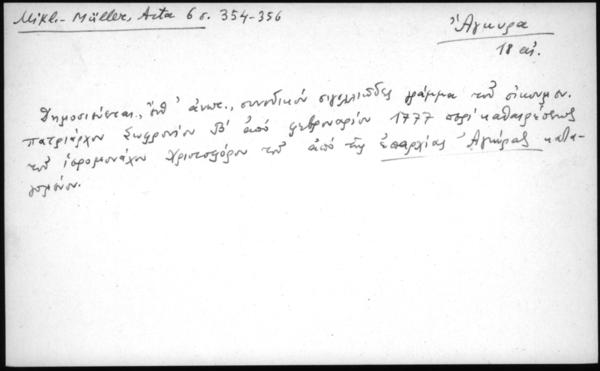 Mikl.- Müller, Acta 6 σ. 354-356
Ἄγκυρα
18 αἰ.
Δημοσιεύεται, ἔνθ' ἀνωτ., συνοδικόν σιγιλλιῶδες γράμμα τοῦ οἰκουμεν.
πατριάρχου Σωφρονίου Β' ἀπό φεβρουαρίου 1777 περί καθαιρέσεως
τοῦ ἱερομονάχου Χριστοφόρου τοῦ ἀπό τῆς ἐπαρχίας Ἀγκύρας κατα-
γομένου.